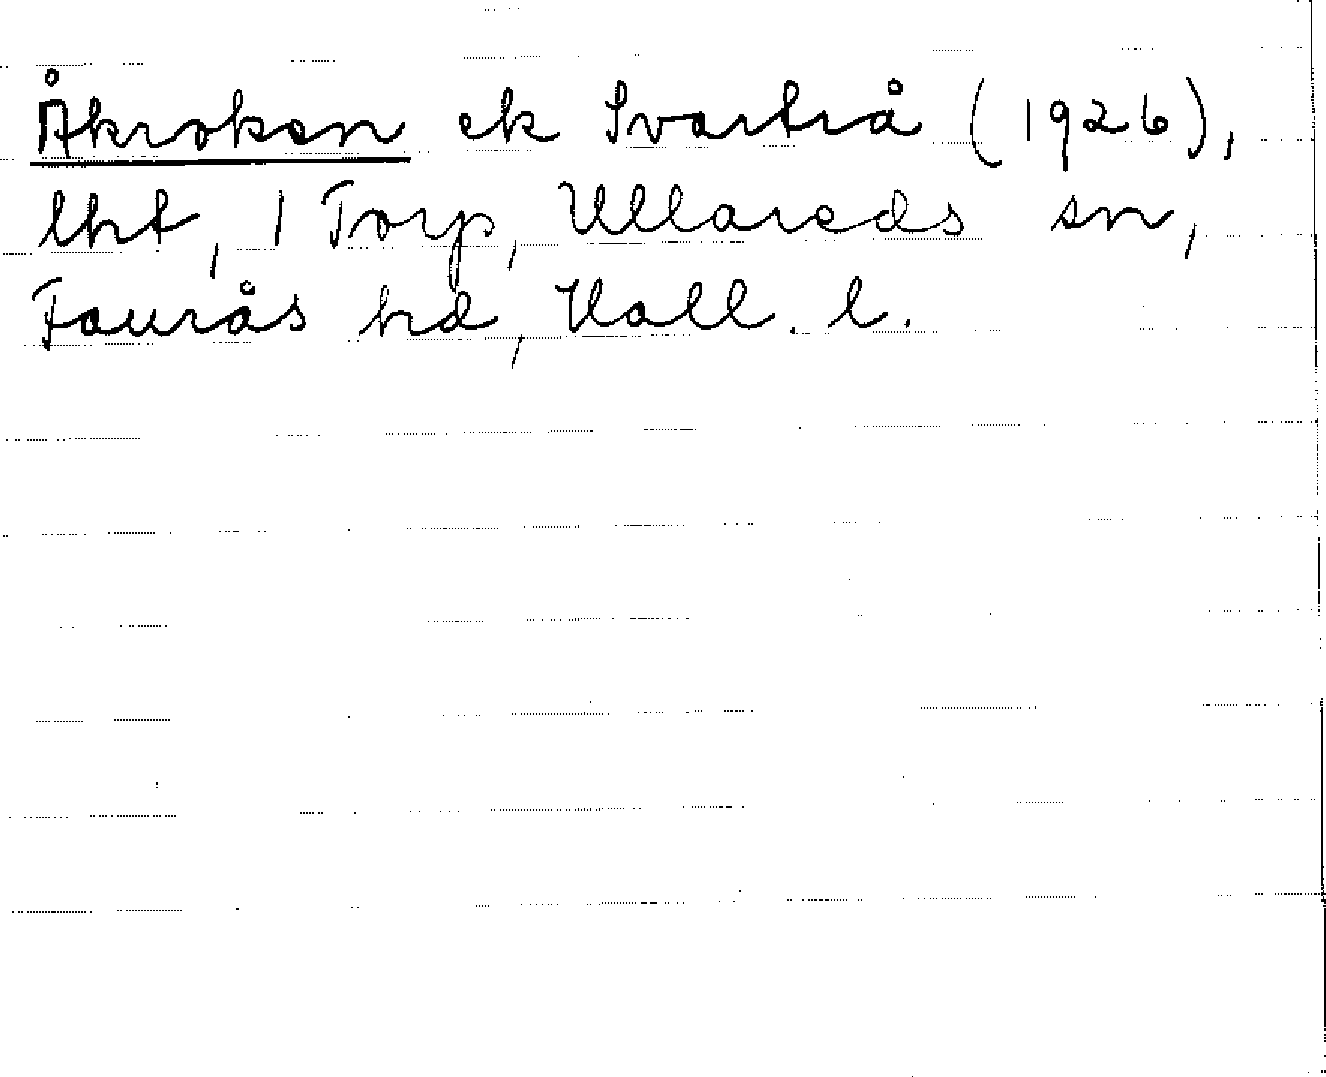 Åkroken ek Svartrå (1926),
lht, 1 Torp, Ullareds sn,
Faurås hd, Hall. l.